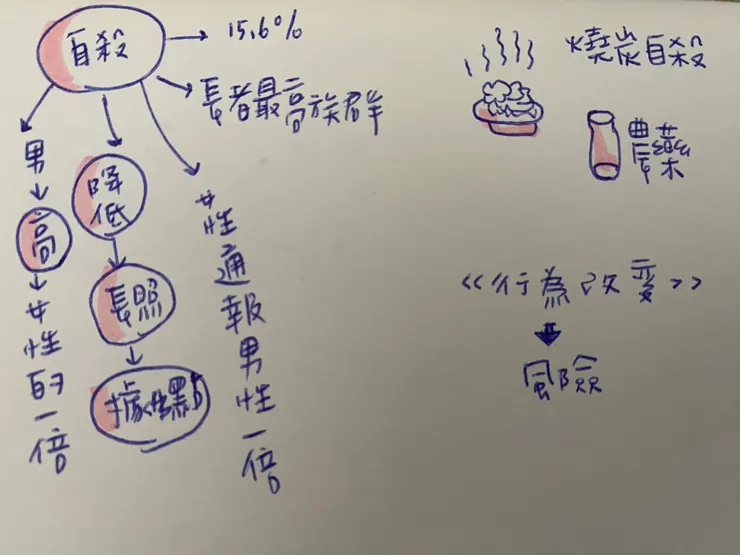 自殺
15.6%
長者最高族群
男
高
女性的一倍
降低
長照
據點
女性通報男性一倍
燒炭自殺
農藥
<<行為改變>>
風險